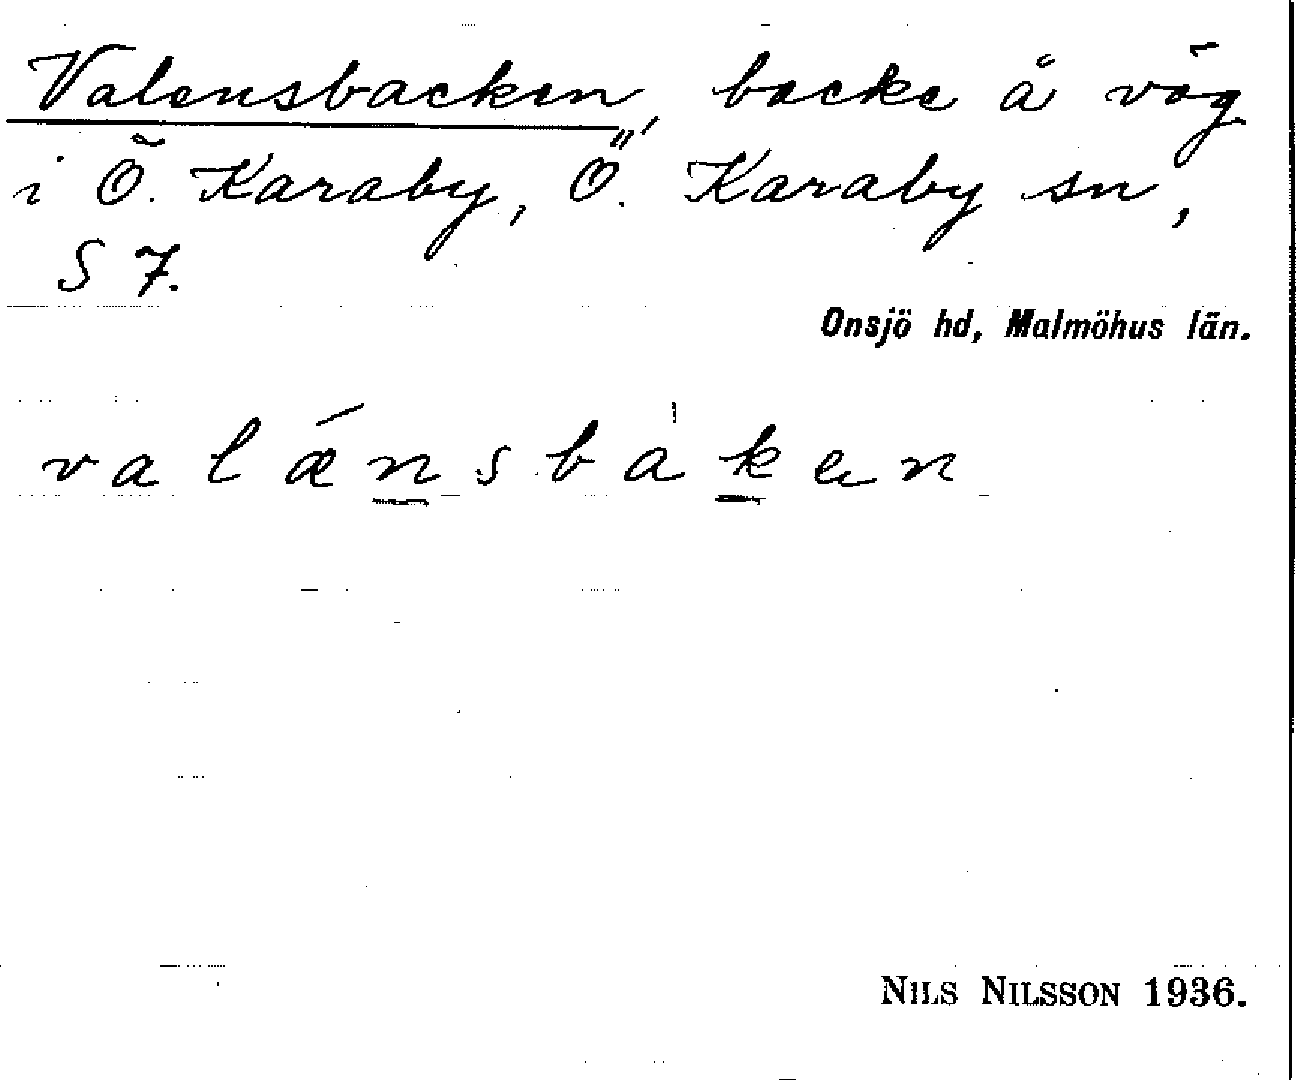 Valensbacken, backe å väg
i Ö. Karaby, Ö. Karaby sn,
S 7.
Onsjö hd, Malmöhus län.
valǽnsbàken
NILS NILSSON 1936.